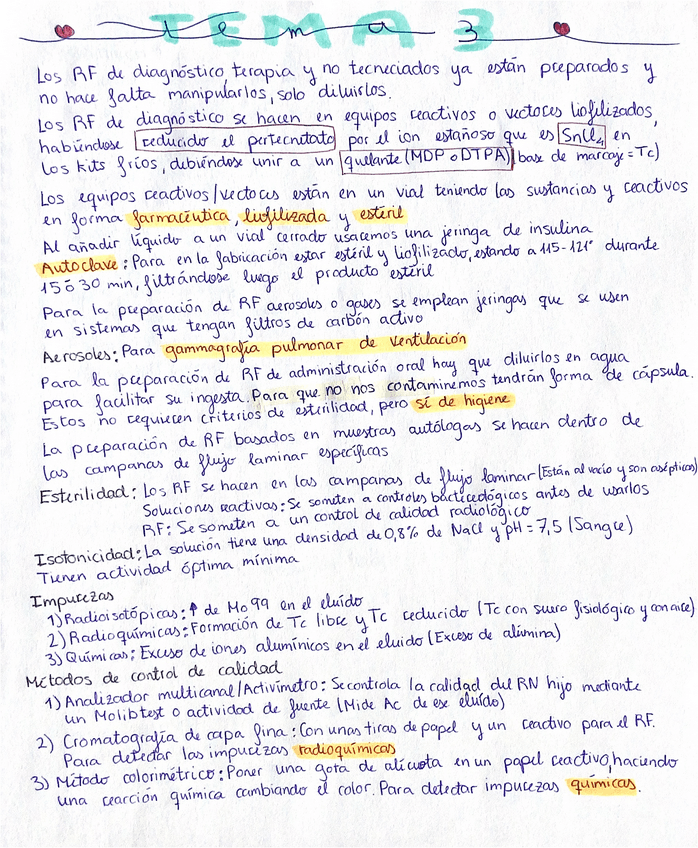 TEMA 3
Los RF de diagnóstico terapia y no tecneciados ya están preparados y
no hace falta manipularlos, solo diluirlos.
Los RF de diagnóstico se hacen en equipos reactivos o vectores liofilizados,
habiéndose reducido el pertecnitato por el ion estañoso que es SnCl4 en
los kits fríos, debiéndose unir a un quelante (MDP o DTPA) (base de marcaje = Tc)
Los equipos reactivos/vectores están en un vial teniendo las sustancias y reactivos
en forma farmacéutica, liofilizada y estéril
Al añadir líquido a un vial cerrado usaremos una jeringa de insulina
Autoclave: Para en la fabricación estar estéril y liofilizado, estando a 115-121° durante
15 ó 30 min, filtrándose luego el producto estéril
Para la preparación de RF aerosoles o gases se emplean jeringas que se usen
en sistemas que tengan filtros de carbón activo
Aerosoles: Para gammagrafía pulmonar de ventilación
Para la preparación de RF de administración oral hay que diluirlos en agua
para facilitar su ingesta. Para que no nos contaminemos tendrán forma de cápsula.
Estos no requieren criterios de esterilidad, pero sí de higiene
La preparación de RF basados en muestras autólogas se hacen dentro de
las campanas de flujo laminar específicas
Esterilidad: Los RF se hacen en las campanas de flujo laminar (Están al vacío y son asépticas)
Soluciones reactivas: Se someten a controles bacteriológicos antes de usarlos
RF: Se someten a un control de calidad radiológico
Isotonicidad: La solución tiene una densidad de 0,8% de NaCl y pH = 7,5 (Sangre)
Tienen actividad óptima mínima
Impurezas
1) Radioisotópicas: ↑ de Mo99 en el eluído
2) Radioquímicas: Formación de Tc libre y Tc reducido (Tc con suero fisiológico y con aire)
3) Químicas: Exceso de iones alumínicos en el eluido (Exceso de alúmina)
Métodos de control de calidad
1) Analizador multicanal/Activímetro: Se controla la calidad del RN hijo mediante
un Molibtest o actividad de fuente (Mide Ac de ese eluído)
2) Cromatografía de capa fina: Con unas tiras de papel y un reactivo para el RF.
Para detectar las impurezas radioquímicas
3) Método colorimétrico: Poner una gota de alícuota en un papel reactivo, haciendo
una rearción química cambiando el color. Para detectar impurezas químicas.